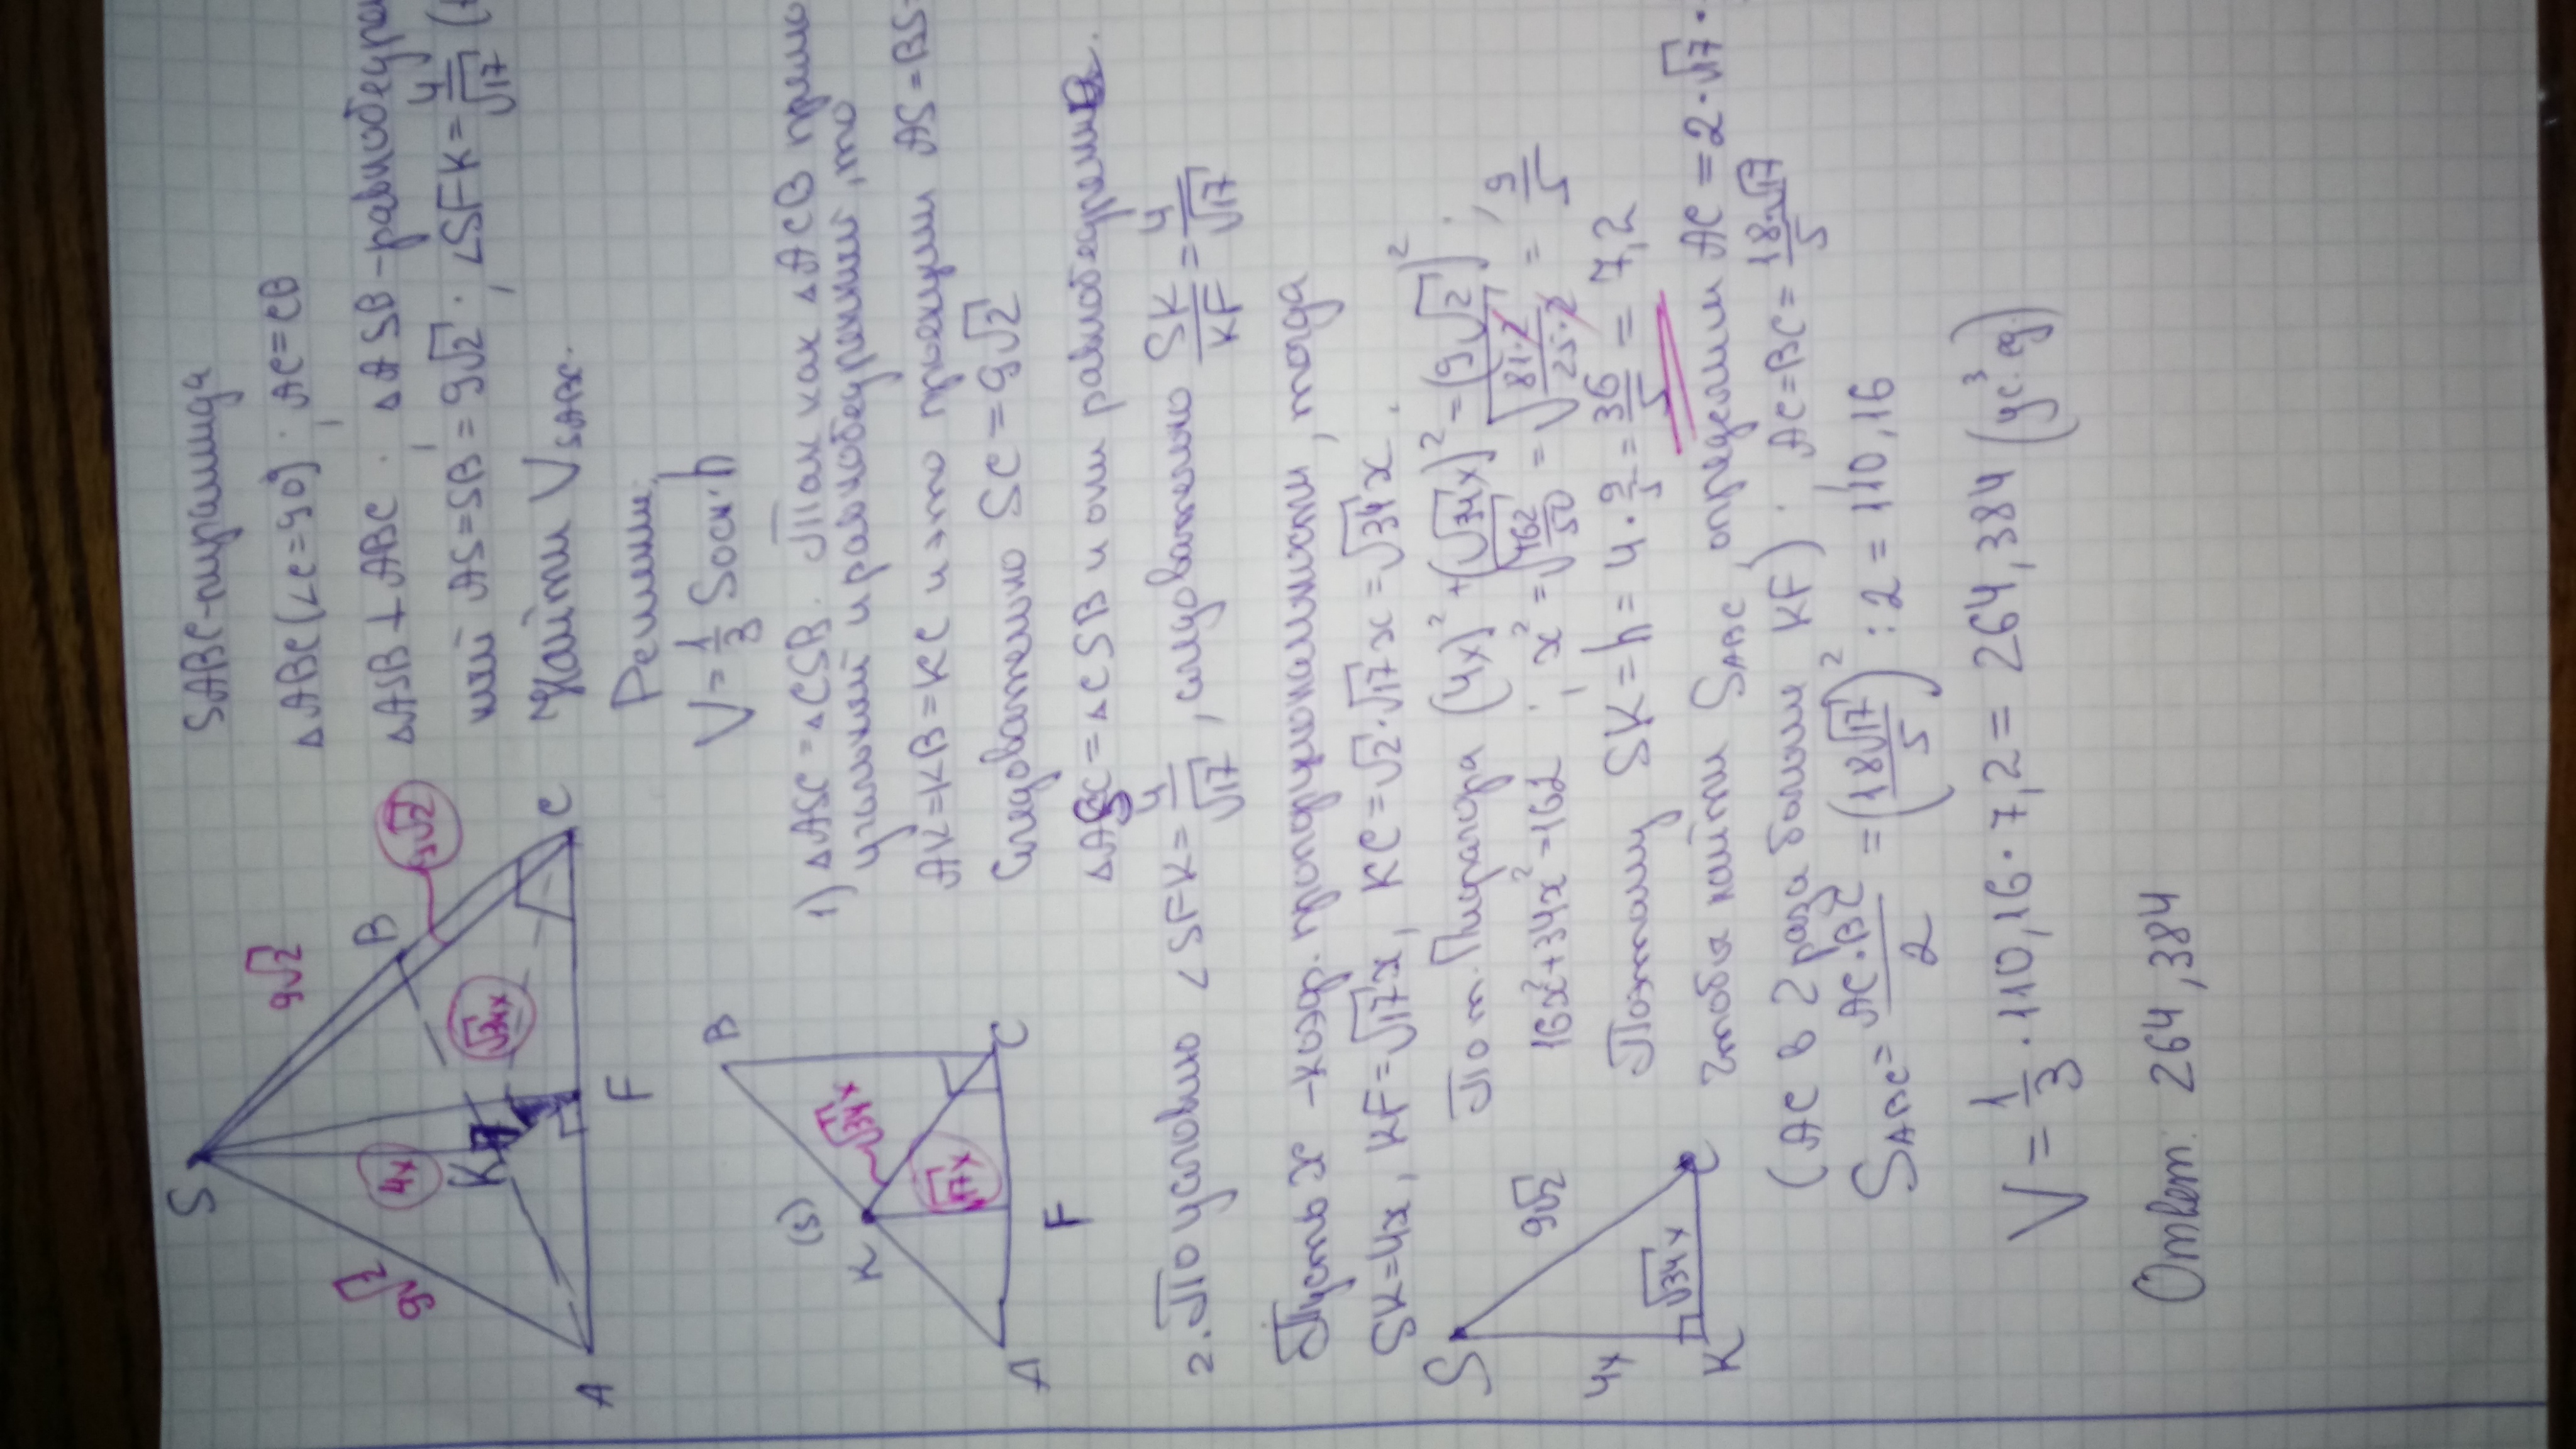 SABC-пирамида
△ABC (∠C=90°); AC=CB
△ASB ⊥ ABC; △ASB-равнобедрен
ний AS=SB=9√2; ∠SFK=4/√17
Найти V SABC.
Решение:
V=1/3 Sосн·h
1) △ASC=△CSB. Так как △ACB прямо
угольний и равнобедренний, то
AK=KB=KC и это проекции AS=BS
Следовательно SC=9√2
△ASC=△CSB и они равнобедренные.
2. По условию ∠SFK=4/√17, следовательно SK/KF=4/√17
Пусть x -коэф. пропорциональности, тогда
SK=4x, KF=√17x, KC=√2·√17x=√34x.
По т. Пифагора (4x)²+(√34x)²=(9√2)²;
16x²+34x²=162; x²=√162/50=√81·2/25·2=9/5
Поэтому SK=h=4·9/5=36/5=7,2
Чтобы найти SABC определим AC=2·√17·
(AC в 2 раза больше KF); AC=BC=18·√17/5
SABC=AC·BC/2=(18√17/5)²:2=110,16
V=1/3·110,16·7,2=264,384 (ус. ед³)
Ответ: 264,384
S
9√2
9√2
B
9√2
4x
√34x
K
A
F
C
B
(S)
K
√34x
√17x
A
F
C
S
9√2
4x
√34x
K
C